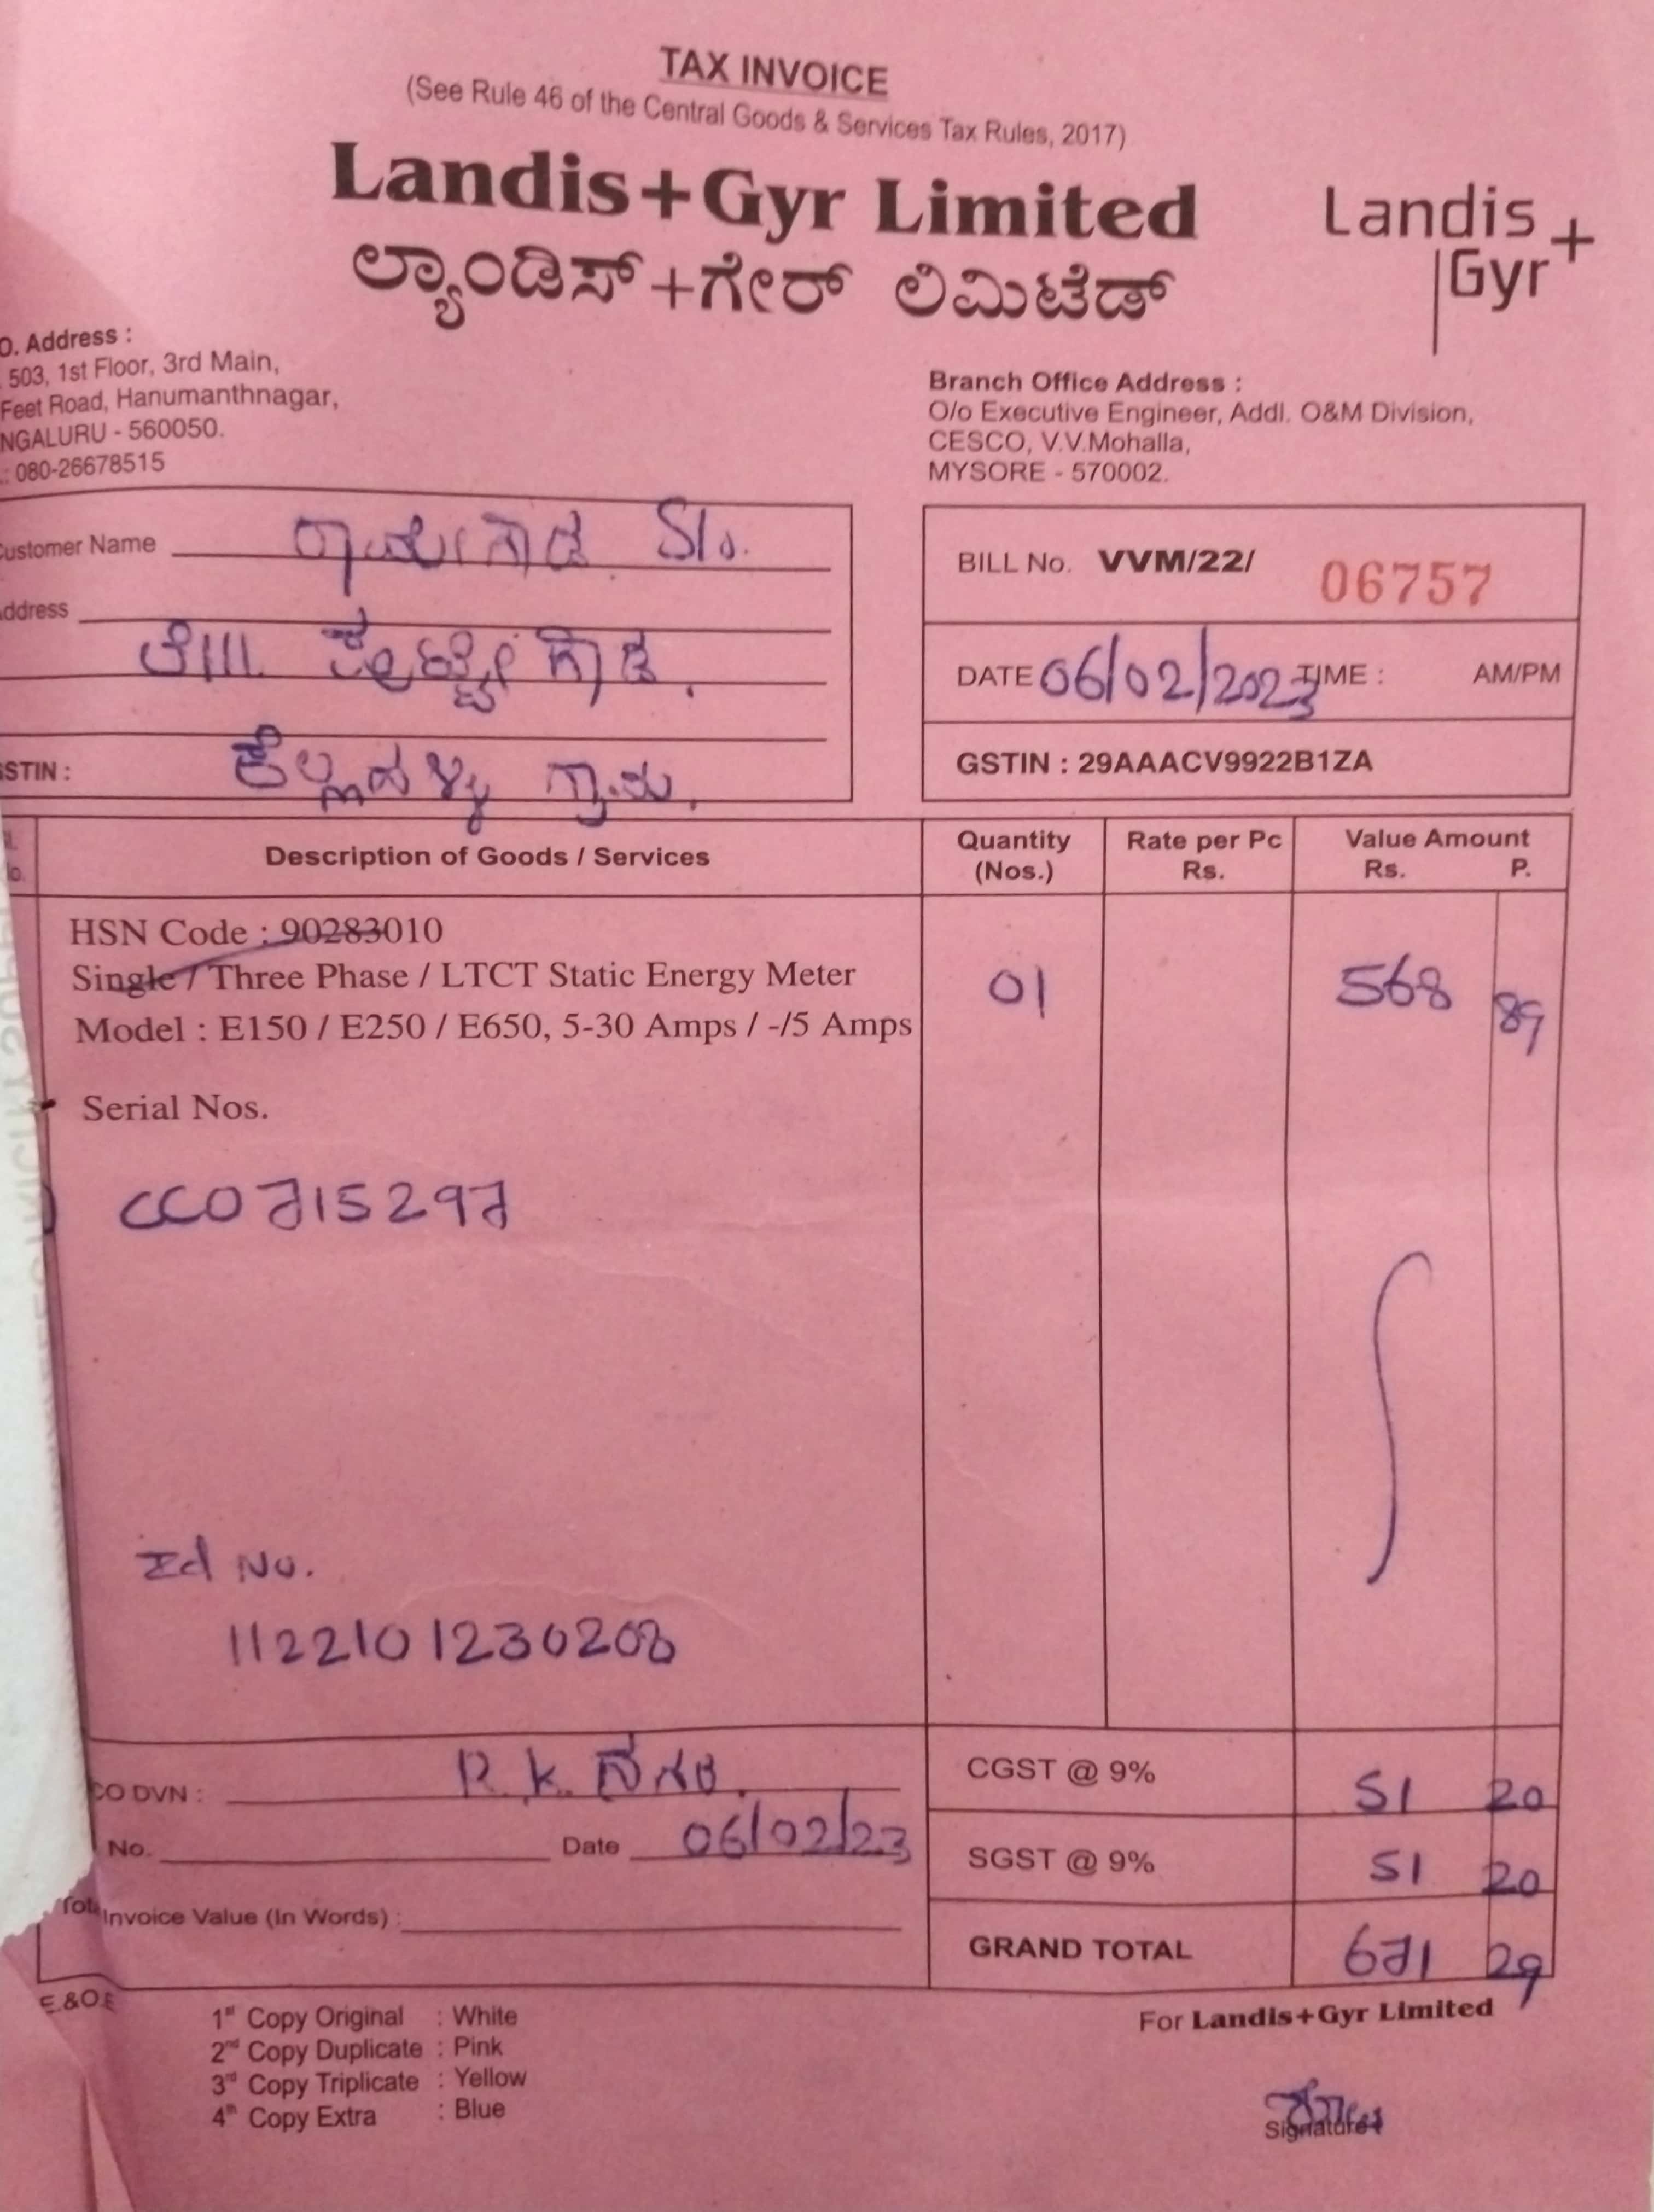 TAX INVOICE
(See Rule 46 of the Central Goods & Services Tax Rules, 2017)
Landis+Gyr Limited
ಲ್ಯಾಂಡಿಸ್+ಗೇರ್ ಲಿಮಿಟೆಡ್
Landis
Gyr+
O. Address :
503, 1st Floor, 3rd Main,
Feet Road, Hanumanthnagar,
NGALURU - 560050.
.: 080-26678515
Branch Office Address :
O/o Executive Engineer, Addl. O&M Division,
CESCO, V.V.Mohalla,
MYSORE - 570002.
ustomer Name ರಾಮೇಗೌಡ S/o.
ddress
ಗೌಡ.
STIN : ಗ್ರಾಮ.
BILL No. VVM/22/ 06757
DATE 06/02/2023 TIME : AM/PM
GSTIN : 29AAACV9922B1ZA
Description of Goods / Services
Quantity (Nos.)
Rate per Pc Rs.
Value Amount
Rs. P.
HSN Code : 90283010
Single / Three Phase / LTCT Static Energy Meter 01 568 89
Model : E150 / E250 / E650, 5-30 Amps / -/5 Amps
Serial Nos.
CC0715297
Id No.
1122101230208
CO DVN : R.K. ನಗರ.
No. Date 06/02/23
Invoice Value (In Words) :
CGST @ 9% 51 20
SGST @ 9% 51 20
GRAND TOTAL 671 29
E.&O.E
1st Copy Original : White
2nd Copy Duplicate : Pink
3rd Copy Triplicate : Yellow
4th Copy Extra : Blue
For Landis+Gyr Limited
Signature